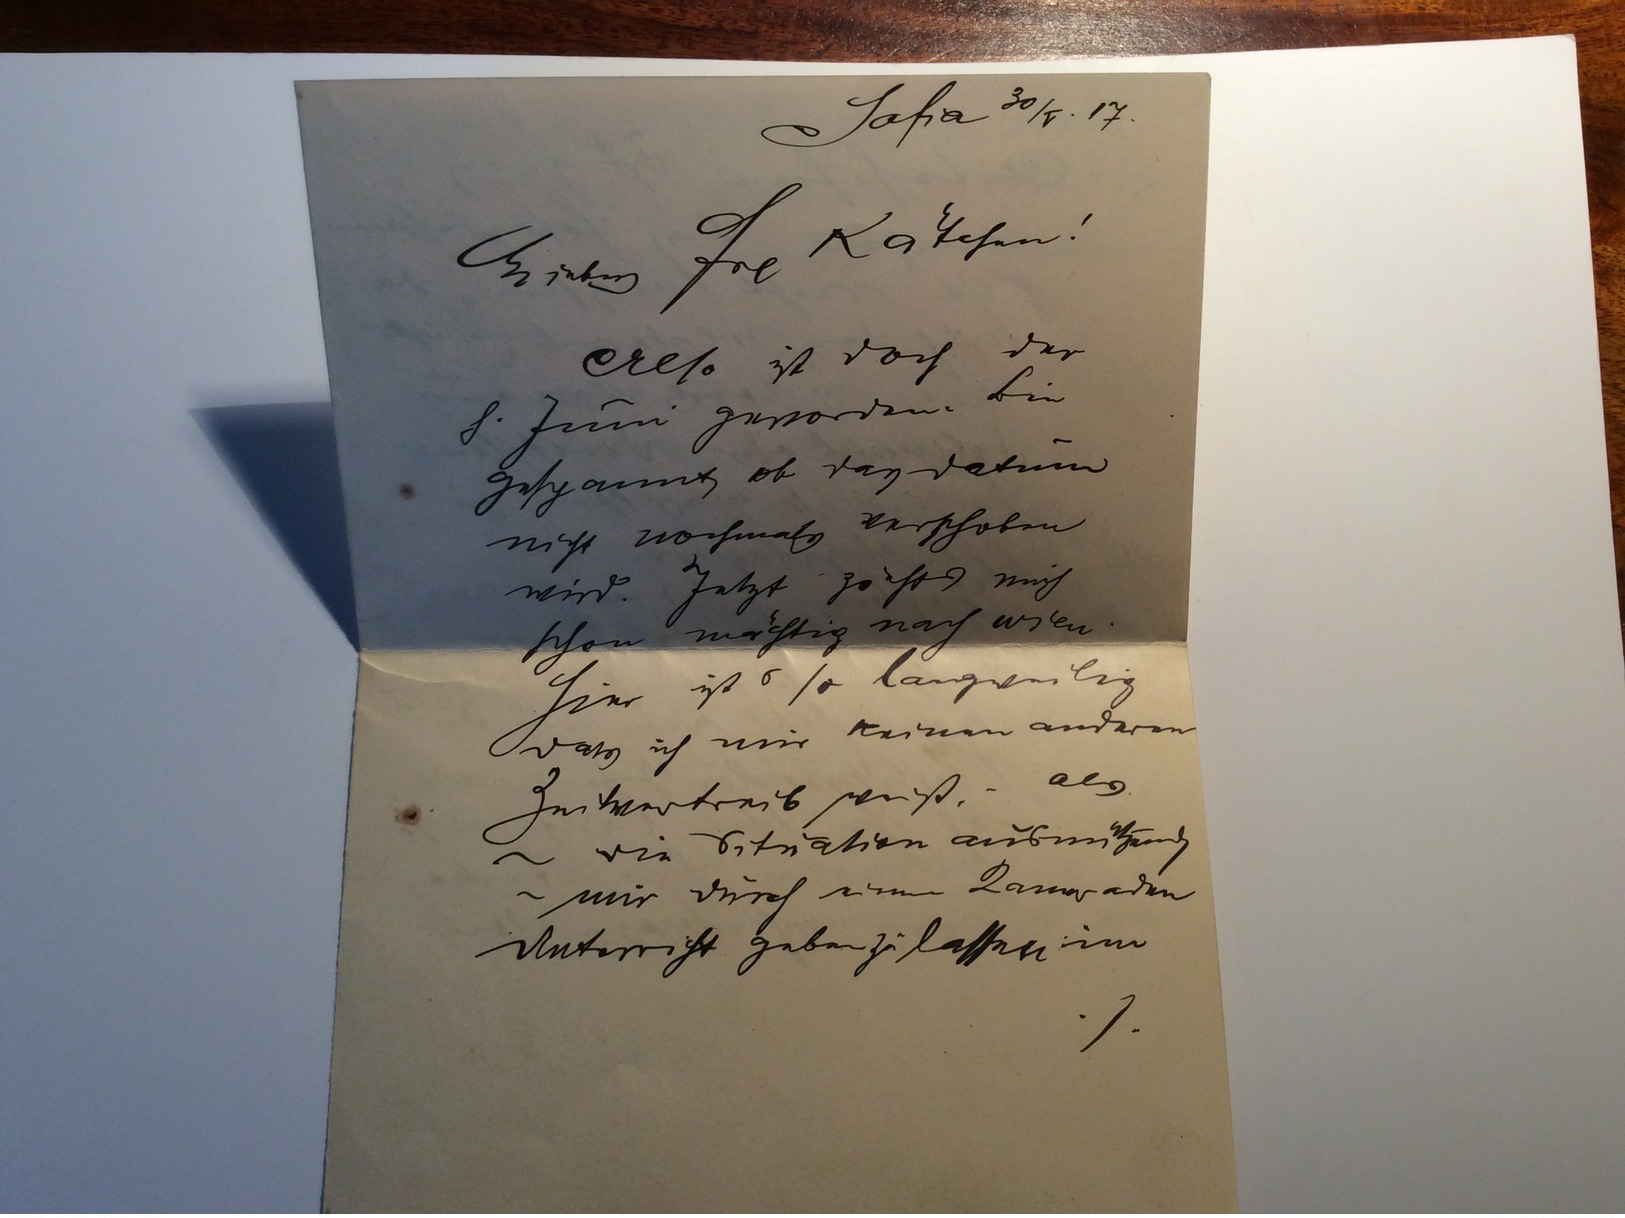 Sofia 30/V. 17.
Liebes Frl Kätchen!
Also ist doch der
8. Juni geworden. Bin
gespannt, ob das datum
nicht nochmals verschoben
wird. Jetzt zieht's mich
schon mächtig nach wien.
Hier ist's so langweilig
dass ich mir keinen anderen
Zeitvertreib weiß, - als
~ die Situation ausnützend,
~ mir durch einen Kameraden
Unterricht geben zu lassen im
./.